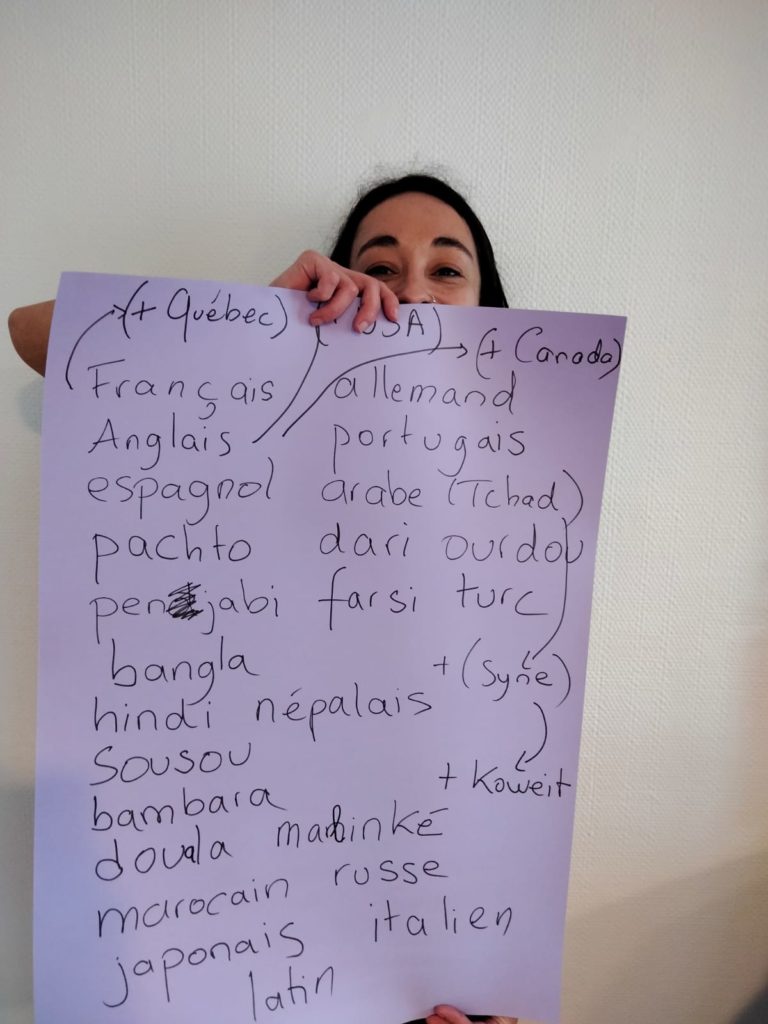 (+ Québec) USA) (+ Canada)
Français allemand
Anglais portugais
espagnol arabe (Tchad)
pachto dari ourdou
penjabi farsi turc
bangla + (Syrie)
hindi népalais
Sousou + Koweit
bambara
douala malinké
marocain russe
japonais italien
latin